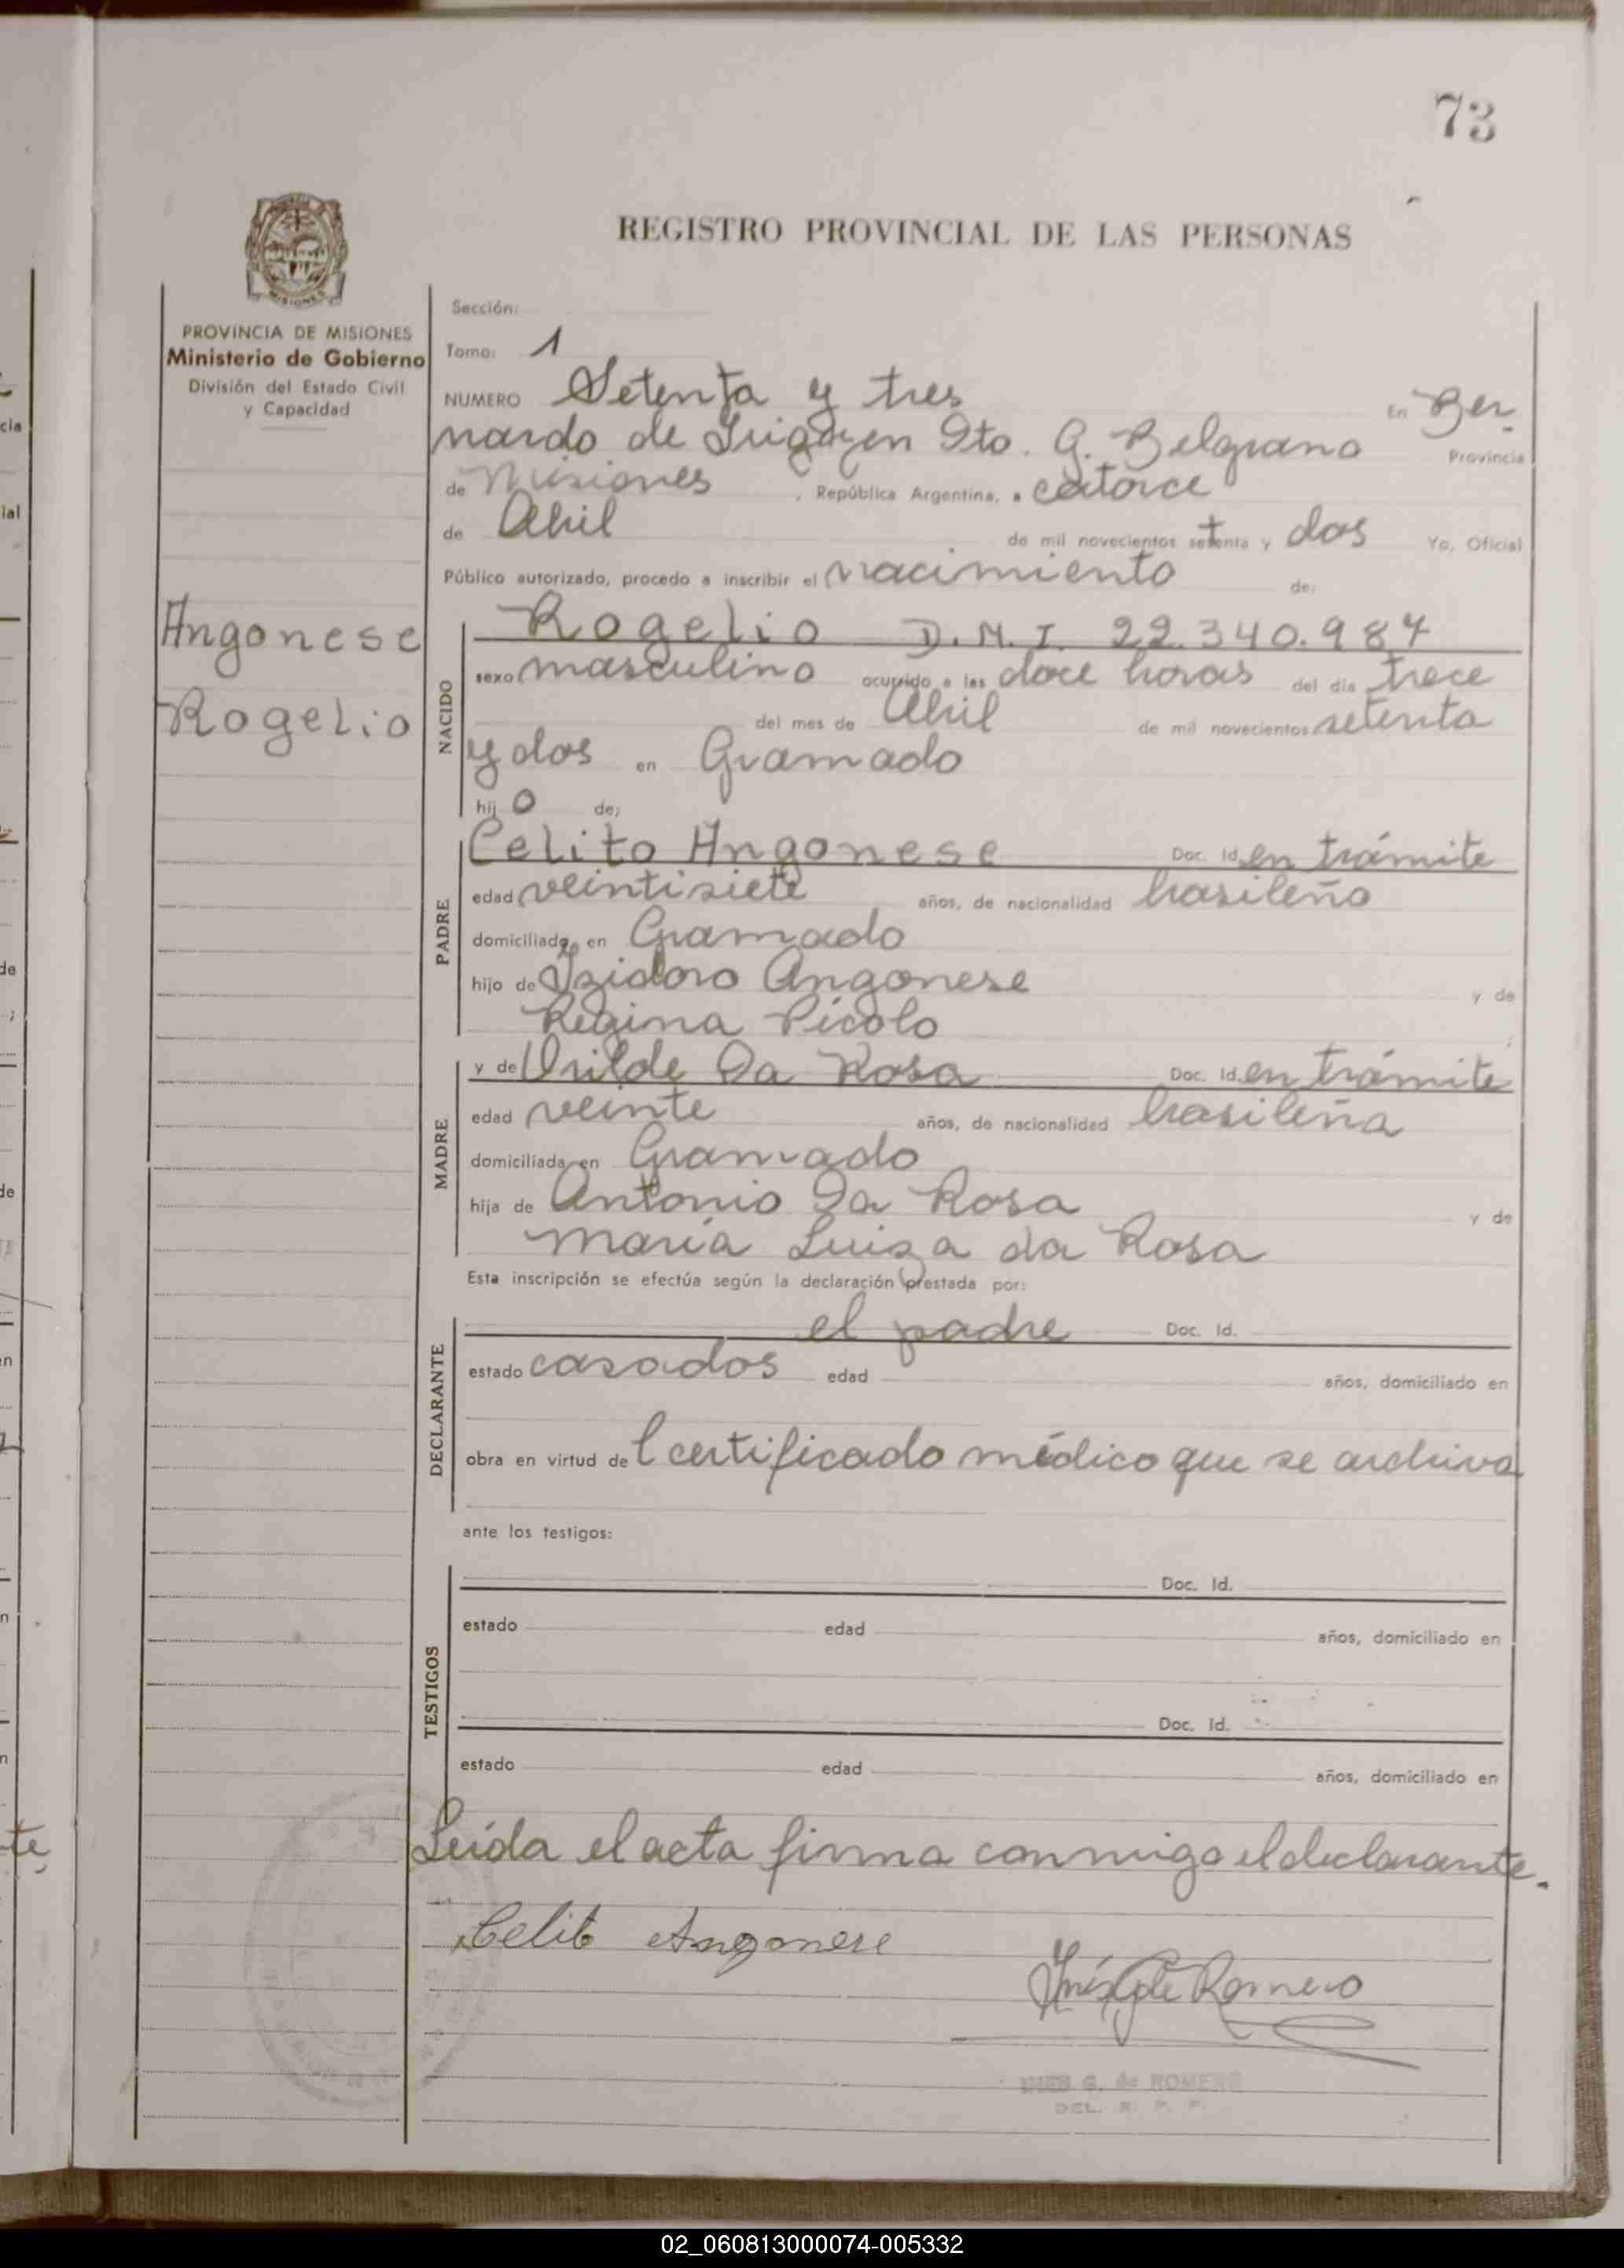 73
REGISTRO PROVINCIAL DE LAS PERSONAS
MISIONES
PROVINCIA DE MISIONES
Ministerio de Gobierno
División del Estado Civil
y Capacidad
Sección:
Tomo: 1
NUMERO Setenta y tres En Ber-
nardo de Irigoyen Dto. G. Belgrano Provincia
de Misiones, República Argentina, a catorce
de Abril de mil novecientos setenta y dos Yo, Oficial
Público autorizado, procedo a inscribir el nacimiento de:
Angonese
Rogelio
NACIDO
Rogelio D.N.I. 22.340.987
sexo masculino ocurrido a las doce horas del día trece
del mes de Abril de mil novecientos setenta
y dos en Gramado
hijo de:
PADRE
Celito Angonese Doc. Id. en trámite
edad veintisiete años, de nacionalidad brasileño
domiciliado en Gramado
hijo de Izidoro Angonese y de
Regina Picolo ;
MADRE
y de Urilde Da Rosa Doc. Id. en trámite
edad veinte años, de nacionalidad brasileña
domiciliada en Gramado
hija de Antonio Da Rosa y de
María Luiza da Rosa
Esta inscripción se efectúa según la declaración prestada por:
DECLARANTE
el padre Doc. Id.
estado casados edad años, domiciliado en
obra en virtud del certificado médico que se archiva
ante los testigos:
TESTIGOS
Doc. Id.
estado edad años, domiciliado en
Doc. Id.
estado edad años, domiciliado en
Leída el acta firma conmigo el declarante.
Celito Angonese
Inés G de Romero
INES G. de ROMERO
DEL. R. P. P.
02_060813000074-005332